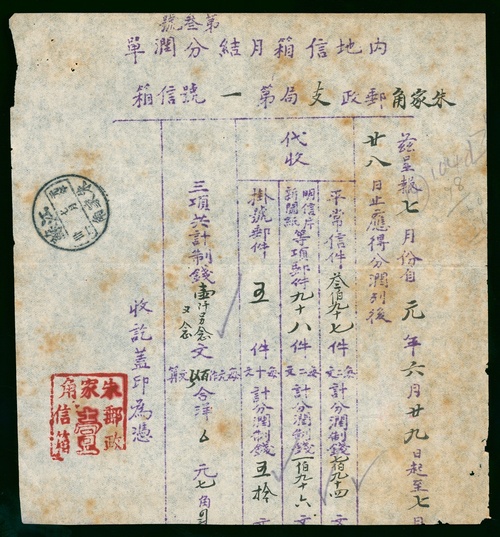 第叁號
內地信箱月結分潤單
朱家角郵政支局第一號信箱
茲呈報七月份自元年六月廿九日起至七月
廿八日止應得分潤列後
代收
平常信件叁佰九十七件每二文計分潤制錢七佰九十四文
明信片新聞紙等項郵件九十八件每二文計分潤制錢佰九十六文
掛號郵件五件每十文計分潤制錢五拾文
三項共計制錢壹仟另念又念文每元作文算合洋元七角
收訖蓋印為憑
朱家角郵政壹信箱